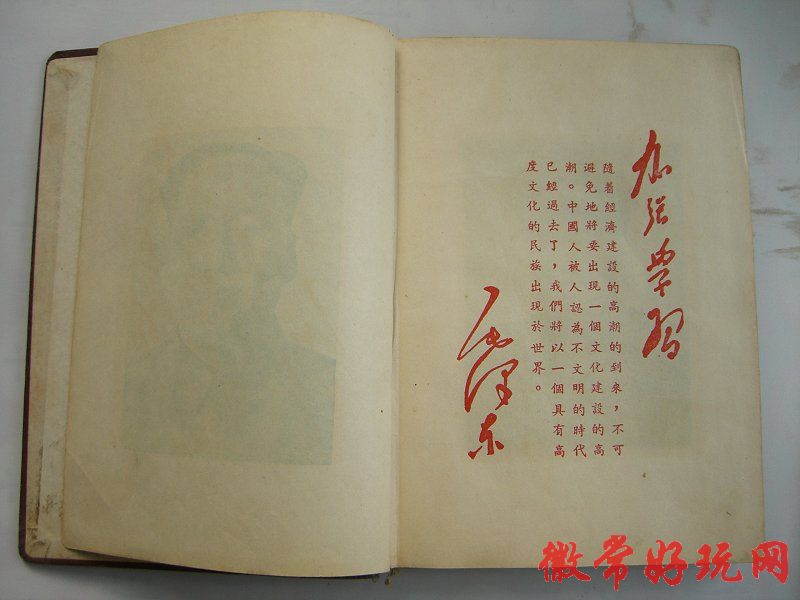 加强学习
隨着經濟建設的高潮的到來，不可
避免地將要出現一個文化建設的高
潮。中國人被人認為不文明的時代
已經過去了，我們將以一個具有高
度文化的民族出現於世界。
毛泽东
徽常好玩网